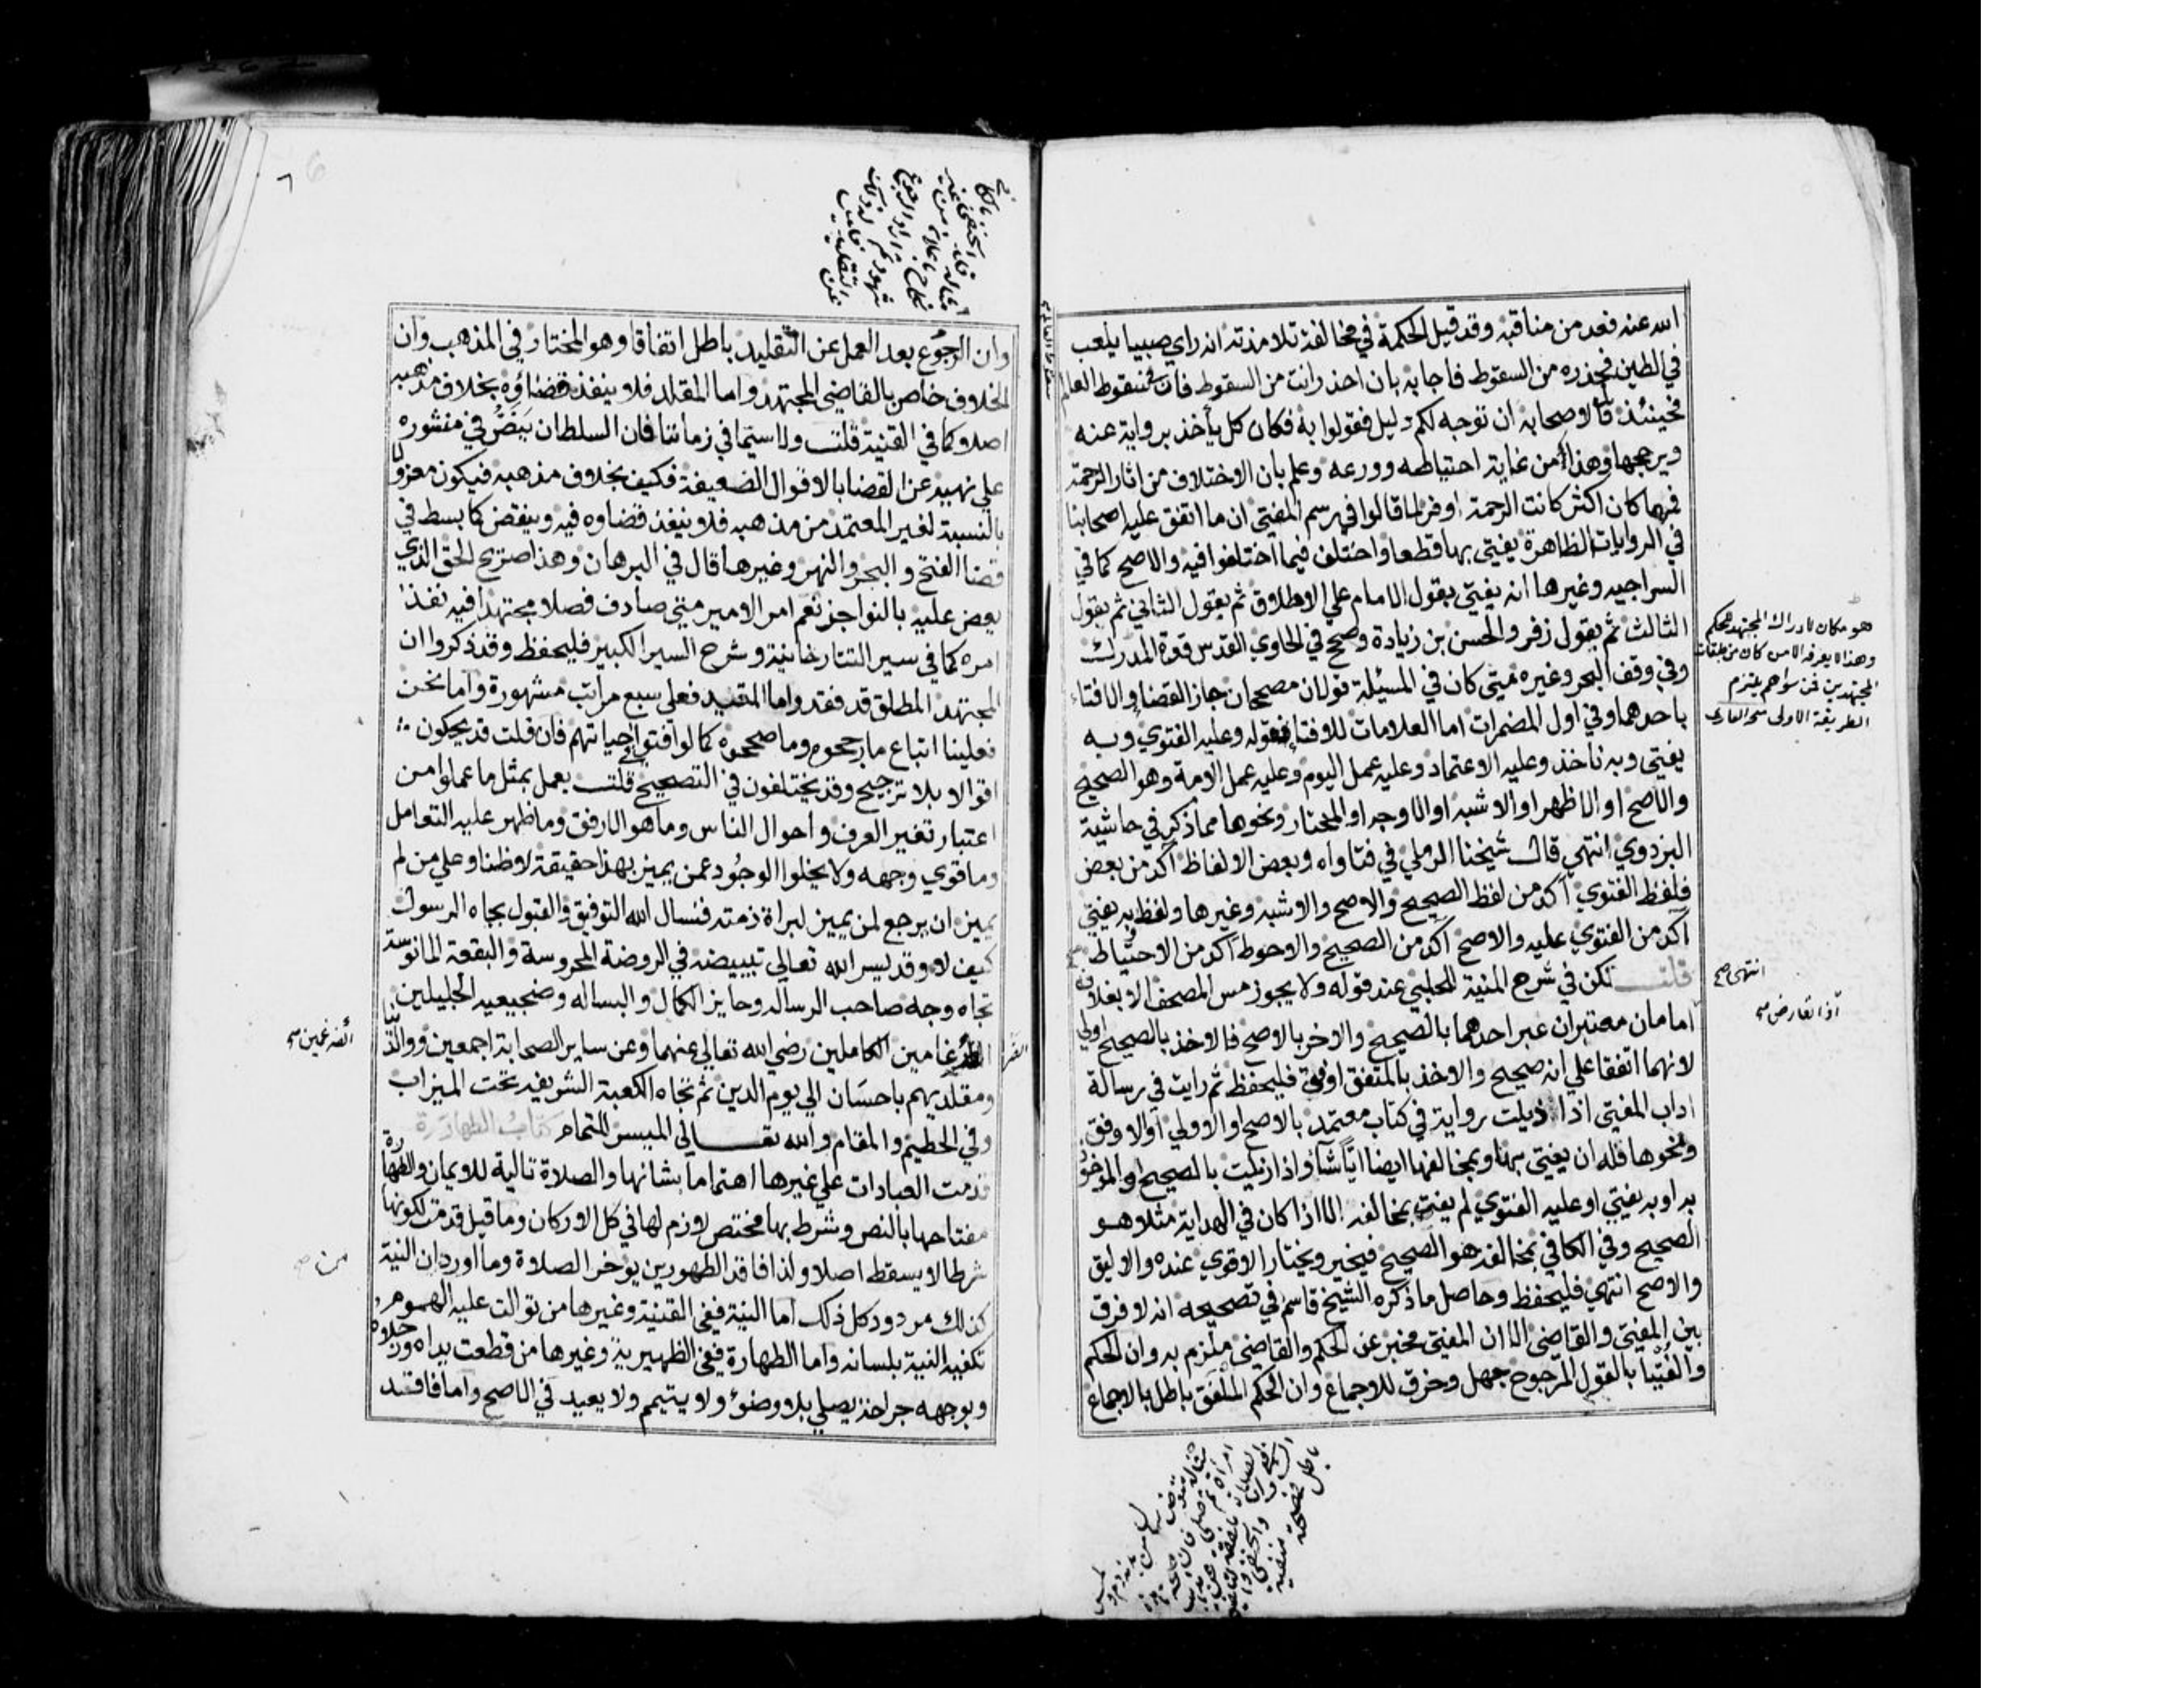 الله عنه فعد من مناقبه وقد قيل الحكمة في مخالفة تلامذته انه راي صبيا يلعب
في الطين فحذره من السقوط فاجابه بان احذر انت من السقوط فان في سقوط العالم
فحينئذ قال لاصحابه ان توجه لكم دليل فقولوا به فكان كل يأخذ برواية عنه
ويرجحها وهذا من غاية احتياطه وورعه وعلم بان الاختلاف من اثار الرحمة
فمهما كان اكثر كانت الرحمة اوفر لما قالوا في رسم المفتي ان ما اتفق عليه اصحابنا
في الروايات الظاهرة يفتي بها قطعا واختلف فيما اختلفوا فيه والاصح كما في
السراجيه وغيرها انه يفتي بقول الامام علي الاطلاق ثم بقول الثاني ثم بقول
الثالث ثم بقول زفر والحسن بن زيادة وصح في الحاوي القدس قوة المدرك
وفي وقف البحر وغيره متي كان في المسئلة قولان مصححان جاز القضا والافتاء
باحدهما وفي اول المضمرات اما العلامات للافتا فقوله وعليه الفتوي وبه
يفتي وبه ناخذ وعليه الاعتماد وعليه عمل اليوم وعليه عمل الامة وهو الصحيح
والاصح او الاظهر او الاشبه او الاوجه او المختار ونحوها مما ذكر في حاشية
البزدوي انتهي قال شيخنا الرملي في فتاواه وبعض الالفاظ آكد من بعض
فلفظ الفتوي آكد من لفظ الصحيح والاصح والاشبه وغيرها ولفظ به يفتي
آكد من الفتوي عليه والاصح آكد من الصحيح والاحوط آكد من الاحتياط
قلت لكن في شرح المنية للحلبي عند قوله ولا يجوز مس المصحف الا بغلافه
امامان معتبران عبر احدهما بالصحيح والاخر بالاصح فالاخذ بالصحيح اولي
لانهما اتفقا علي انه صحيح والاخذ بالمتفق اوفق فليحفظ ثم رايت في رسالة
اداب المفتي اذا ذيلت رواية في كتاب معتمد بالاصح او الاولي او الاوفق
ونحوها فله ان يفتي بها وبمخالفها ايضا ايا شآء واذا زيلت بالصحيح او الماخوذ
به او به يفتي او عليه الفتوي لم يفت بمخالفه الا اذا كان في الهداية مثلا هو
الصحيح وفي الكافي بمخالفه هو الصحيح فيخير ويختار الاقوي عنده والاليق
والاصح انتهي فليحفظ وحاصل ما ذكره الشيخ قاسم في تصحيحه انه لا فرق
بين المفتي والقاضي الا ان المفتي مخبر عن الحكم والقاضي ملزم به وان الحكم
والفتيا بالقول المرجوح جهل وخرق للاجماع وان الحكم الملفق باطل بالاجماع
هو مكان لادراك المجتهد للحكم
وهذا لا يعرفه الا من كان من طبقات
المجتهدين فمن سواهم يلتزم
الطريقة الاولى
انتهى صح
اذا تعارض صح
وان الرجوع بعد العمل عن التقليد باطل اتفاقا وهو المختار في المذهب وان
الخلاف خاص بالقاضي المجتهد واما المقلد فلا ينفذ قضاؤه بخلاف مذهبه
اصلا كما في القنية قلت ولا سيما في زماننا فان السلطان ينص في منشوره
علي نهييه عن القضا بالاقوال الضعيفة فكيف بخلاف مذهبه فيكون معزولا
بالنسبة لغير المعتمد من مذهبه فلا ينفذ قضاوه فيه وينقض كما بسط في
قضا الفتح و البحر والنهر وغيرها قال في البرهان وهذا صريح الحق الذي
يعض عليه بالنواجز نعم امر الامير متي صادف فصلا مجتهدا فيه نفذ
امره كما في سير التتارخانية وشرح السير الكبير فليحفظ وقد ذكروا ان
المجتهد المطلق قد فقد واما المقيد فعلي سبع مراتب مشهورة واما نحن
فعلينا اتباع ما رجحوه وما صححوه كما لو افتوا في حياتهم فان قلت قد يحكون
اقوالا بلا ترجيح وقد يختلفون في التصحيح قلت يعمل بمثل ما عملوا من
اعتبار تغير العرف واحوال الناس وما هو الارفق وما ظهر عليه التعامل
وما قوي وجهه ولا يخلوا الوجود عمن يميز بهذا حقيقة لا وظنا وعلي من لم
يميز ان يرجع لمن يميز لبراة ذمته فنسال الله التوفيق والقبول بجاه الرسول
كيف لا وقد يسر الله تعالي تبييضه في الروضة المحروسة والبقعة المانوسة
تجاه وجه صاحب الرساله وحايز الكمال و البساله وضجيعيه الجليلين
الضرغامين الكاملين رضي الله تعالي عنهما وعن ساير الصحابة اجمعين ووالدينا
ومقلديهم باحسان الي يوم الدين ثم تجاه الكعبة الشريفه تحت الميزاب
وفي الحطيم والمقام والله تعالي الميسر للتمام كتاب الطهارة
قدمت العبادات علي غيرها اهتماما بشانها والصلاة تالية للايمان والطهارة
مفتاحها بالنص وشرط بها مختص لازم لها في كل الاركان وما قيل قدمت لكونها
شرطا لا يسقط اصلا ولذا فاقد الطهورين يوخر الصلاة وما اورد ان النية
كذلك مردود كل ذلك اما النية ففي القنية وغيرها من توالت عليه الهموم
تكفيه النية بلسانه واما الطهارة ففي الظهيرية وغيرها من قطعت يداه ورجلاه
وبوجهه جراحة يصلي بلا وضوء ولا يتيمم ولا يعيد في الاصح واما فاقد